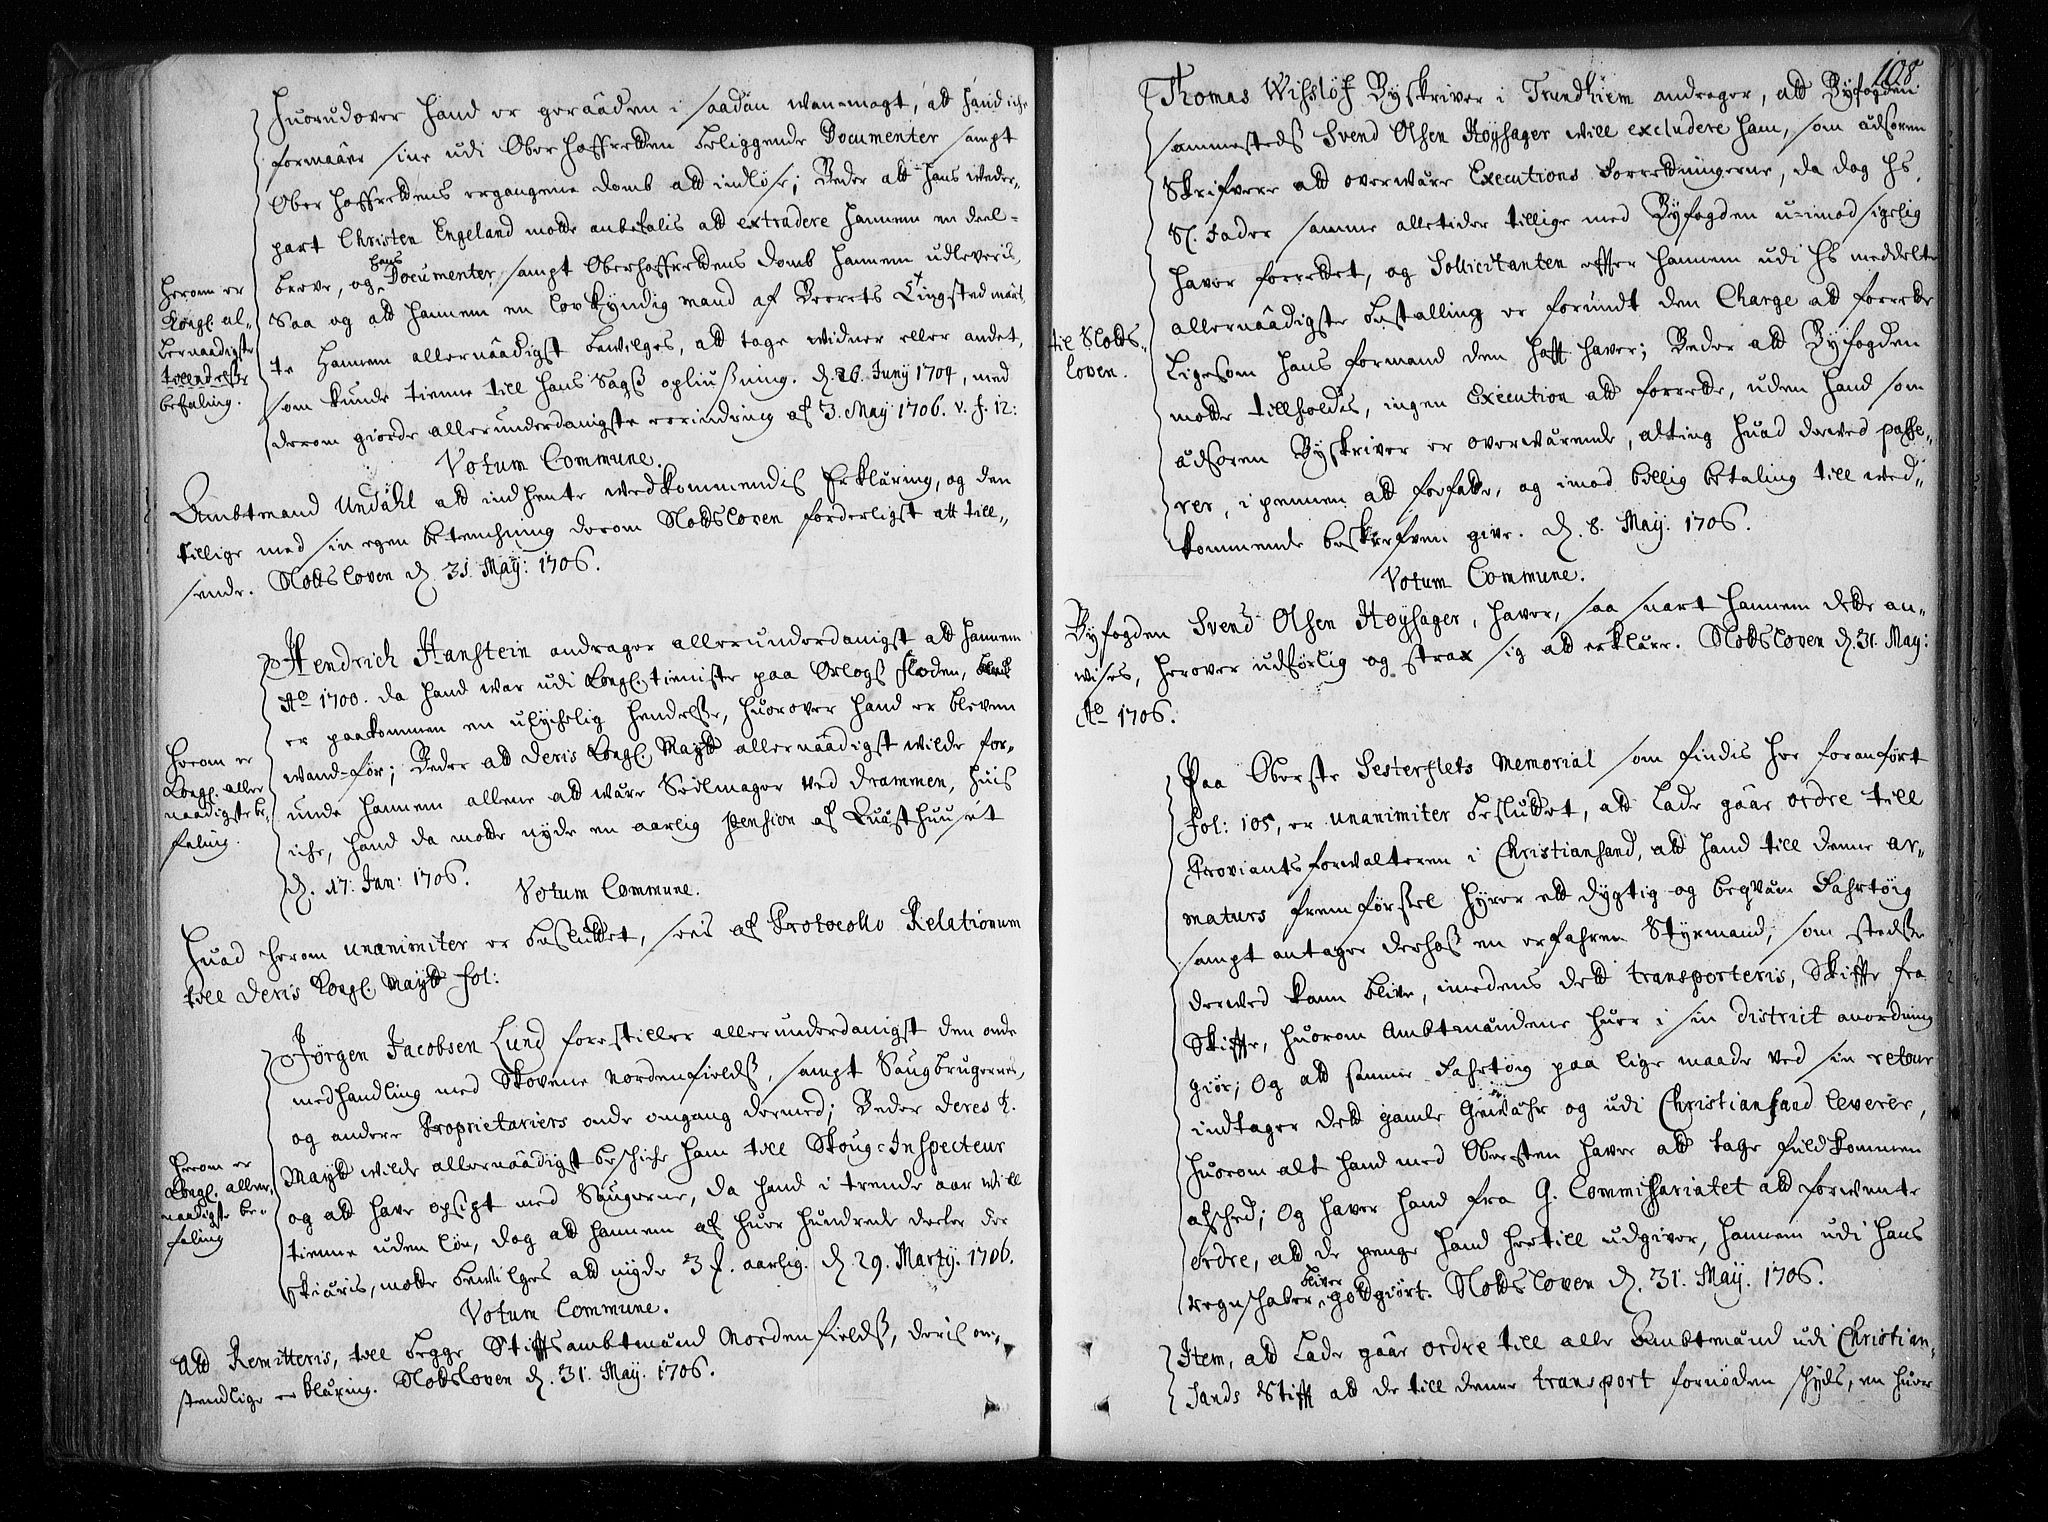 Huorudover hand er geraaden i saadan wan-magt, att hand iche
formaaer sine udi Ober Hoffretten beliggende Documenter sampt
Ober Hoffrettens ergangene domb att indløse; Beder att hans weder-
part Christen Engeland motte anbefalis att extradere hannem en deel
breve, og hans Documenter, sampt Oberhoffrettens domb hannem udleveris,
Saa og att hannem en lov kyndig mand af
te hannem allernaadigst bewilges, att tage widner eller andet,
som kunde tienne till hans Sags opliusning. d. 26. Junij 1704, med
derom giorde allerunderdanigste erindring af 3. Maij 1706. v. f. 12:
Herom er
Kongl. al-
lernaadigste
befaling.
Votum Commune.
Ambtmand Undahl att indhente wedkommendis Erklæring, og den
tillige med sin egen betenchning derom Slottsloven forderligst att till-
sende. Slottsloven d. 31. Maij: 1706.
Hendrich Hanstein andrager allerunderdanigst att hannem
Ao 1700. da hand war udi Kongl. tieniste paa Orlogs floden,
er paakommen en ulychelig hendelse, huorover hand er bleven
wand-før; Beder att Deris Kongl. Maytt allernaadigst wilde for-
unde hannem allene att være Seilmager ved Drammen, huis
iche, hand da motte nyde en aarlig pension af Quæsthuuset
d. 17. Jan: 1706.
Herom er
Kongl. aller
naadigste be-
faling.
Votum Commune.
Huad herom unanimiter er besluttet, sees af Protocollo Relationum
till Deris Kongl. Maytt fol:
Jørgen Jacobsen Lund forestiller allerunderdanigst den onde
medhandling med Skovene nordenfields, sampt Saugbrugernes,
og andere Proprietariers onde omgang dermed; Beder Deres K.
Maytt wilde allernaadigst beschiche ham till Skoug-Inspecteur
og att have opsigt med Saugerne, da hand i trende aar will
tienne uden løn, dog att hannem af huer hundrede decher der
skiæris, motte bewilges att nyde 3 . aarlig. d. 29. Martij. 1706.
Herom er
Kongl. aller-
naadigste be-
faling
Votum Commune.
Att Remitteris, till begge Stifftsambtmænd Nordenfields, deris om-
stendlige erklæring. Slottsloven d. 31. Maij. 1706.
108.
Thomas Wihsløf Byskriver i Trundhiem andrager, att Byfogden
sammesteds Svend Olsen Høyhager will excludere ham, som adsoren
Skrifvere att overwære Executions Forretningerne, da dog hs.
Sl. Fader samme alletider tillige med Byfogden u-imodsigelig
haver forrettet, og Sollicitanten effter hannem udi hs meddelte
allernaadigste bestalling er forundt den Charge att forrette
Ligesom hans formand den hafft haver; Beder att Byfogden
motte tillholdes, ingen Execution att forrette, uden hand som
adsoren Byskriver er overwærende, alting huad derved passe-
rer, i pennen att forfatte, og imod billig betaling till ved-
kommende beskrefven give. d. 8. Maij. 1706.
til Slotts-
loven.
Votum Commune.
Byfogden Svend Olsen Høyhager, haver, saa snart hannem dette an-
wises, herover udførlig og strax sig att erklære. Slottsloven d. 31. Maij:
Ao 1706.
Paa Oberste Sesterflets Memorial som findis her foranført
fol: 105, er unanimiter besluttet, att lade gaae ordre till
Proviantsforwalteren i Christiansand, att hand till denne ar-
maturs fremførsel hyrer ett dygtig og beqvæm Fahrtøig
sampt antager derhos en erfahren Styrmand, som stedse
derved kann blive, imedens dett transporteris, Skiffte fra
Skiffte, huorom Ambtmændene huer i sin District anordning
giør; Og att samme Fahrtøig paa lige maade ved sin retour
indtager dett gamle Gewæhr og udi Christiansand leverer,
huorom alt hand med Obersten haver att tage fuldkommen
afsched; Og haver hand fra G. Commissariatet att forwente
ordre, att de penge hand hertill udgiver, hannem udi hans
regnschaber bliver gottgiørt. Slottsloven d. 31. Maij. 1706.
Item, att Lade gaae ordre till alle Ambtmænd udi Christian-
sands Stifft att de till denne transport fornøden schyds, en huer